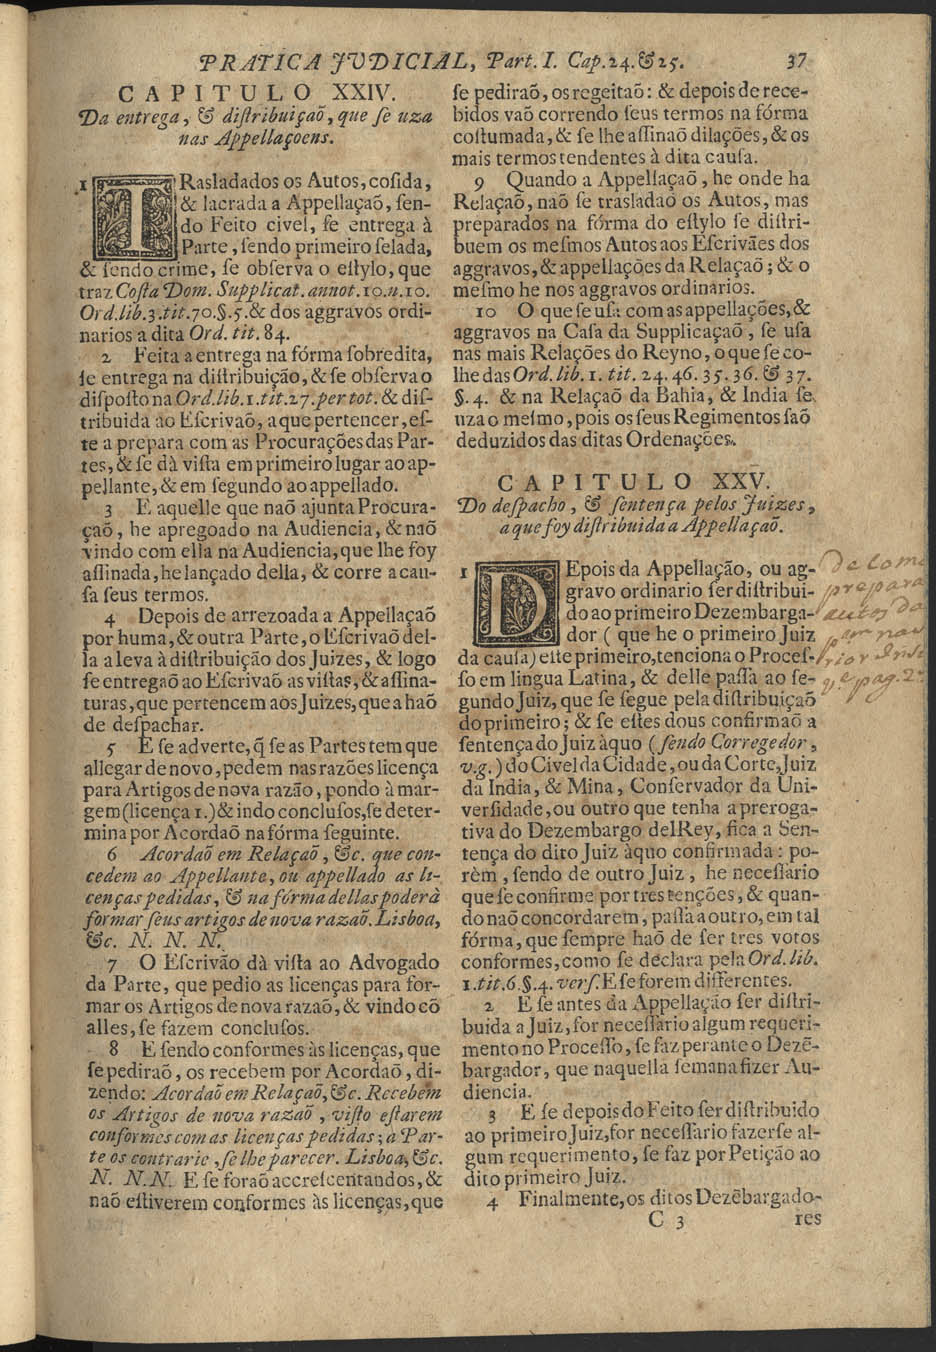 PRATICA JVDICIAL, Part. I. Cap. 24. & 25. 37
CAPITULO XXIV.
Da entrega, & diſtribuiçaõ, que ſe uza
nas Appellaçoens.
1 TRasladados os Autos, coſida,
& lacrada a Appellaçaõ, ſen-
do Feito civel, ſe entrega à
Parte, ſendo primeiro ſelada,
& ſendo crime, ſe obſerva o eſtylo, que
traz Coſta Dom. Supplicat. annot. 10. n. 10.
Ord. lib. 3. tit. 70. §. 5. & dos aggravos ordi-
narios a dita Ord. tit. 84.
2 Feita a entrega na fórma ſobredita,
ſe entrega na diſtribuição, & ſe obſerva o
diſpoſto na Ord. lib. 1. tit. 27. per tot. & diſ-
tribuida ao Eſcrivaõ, a que pertencer, eſ-
te a prepara com as Procurações das Par-
tes, & ſe dà viſta em primeiro lugar ao ap-
pellante, & em ſegundo ao appellado.
3 E aquelle que naõ ajunta Procura-
çaõ, he apregoado na Audiencia, & naõ
vindo com ella na Audiencia, que lhe foy
aſſinada, he lançado della, & corre a cau-
ſa ſeus termos.
4 Depois de arrezoada a Appellaçaõ
por huma, & outra Parte, o Eſcrivaõ del-
la a leva à diſtribuição dos Juizes, & logo
ſe entregaõ ao Eſcrivaõ as viſtas, & aſſina-
turas, que pertencem aos Juizes, que a haõ
de deſpachar.
5 E ſe adverte, q̃ ſe as Partes tem que
allegar de novo, pedem nas razões licença
para Artigos de nova razão, pondo à mar-
gem (licença 1.) & indo concluſos, ſe deter-
mina por Acordaõ na fórma ſeguinte.
6 Acordaõ em Relaçaõ, &c. que con-
cedem ao Appellante, ou appellado as li-
cenças pedidas, & na fórma dellas poderà
formar ſeus artigos de nova razaõ. Lisboa,
&c. N. N. N.
7 O Eſcrivão dà viſta ao Advogado
da Parte, que pedio as licenças para for-
mar os Artigos de nova razaõ, & vindo cõ
alles, ſe fazem concluſos.
8 E ſendo conformes às licenças, que
ſe pediraõ, os recebem por Acordaõ, di-
zendo: Acordaõ em Relaçaõ, &c. Recebem
os Artigos de nova razaõ, viſto eſtarem
conformes com as licenças pedidas; a Par-
te os contrarie, ſe lhe parecer. Lisboa, &c.
N. N. N. E ſe foraõ accreſcentandos, &
naõ eſtiverem conformes às licenças, que
ſe pediraõ, os regeitaõ: & depois de rece-
bidos vaõ correndo ſeus termos na fórma
coſtumada, & ſe lhe aſſinaõ dilações, & os
mais termos tendentes à dita cauſa.
9 Quando a Appellaçaõ, he onde ha
Relaçaõ, naõ ſe trasladaõ os Autos, mas
preparados na fórma do eſtylo ſe diſtri-
buem os meſmos Autos aos Eſcrivães dos
aggravos, & appellações da Relaçaõ; & o
meſmo he nos aggravos ordinarios.
10 O que ſe uſa com as appellações, &
aggravos na Caſa da Supplicaçaõ, ſe uſa
nas mais Relações do Reyno, o que ſe co-
lhe das Ord. lib. 1. tit. 24. 46. 35. 36. & 37.
§. 4. & na Relaçaõ da Bahia, & India ſe
uza o meſmo, pois os ſeus Regimentos ſaõ
deduzidos das ditas Ordenações.
CAPITULO XXV.
Do deſpacho, & ſentença pelos Juizes,
a que foy diſtribuida a Appellaçaõ.
1 DEpois da Appellação, ou ag-
gravo ordinario ſer diſtribui-
do ao primeiro Dezembarga-
dor ( que he o primeiro Juiz
da cauſa) eſte primeiro, tenciona o Proceſ-
ſo em lingua Latina, & delle paſſà ao ſe-
gundo Juiz, que ſe ſegue pela diſtribuiçaõ
do primeiro; & ſe eſtes dous confirmaõ a
ſentença do Juiz àquo (ſendo Corregedor,
v.g.) do Civel da Cidade, ou da Corte, Juiz
da India, & Mina, Conſervador da Uni-
verſidade, ou outro que tenha a preroga-
tiva do Dezembargo delRey, fica a Sen-
tença do dito Juiz àquo confirmada: po-
rèm, ſendo de outro Juiz, he neceſſario
que ſe confirme por tres tenções, & quan-
do naõ concordarem, paſſa a outro, em tal
fórma, que ſempre haõ de ſer tres votos
conformes, como ſe declara pela Ord. lib.
1. tit. 6. §. 4. verſ. E ſe forem differentes.
2 E ſe antes da Appellação ſer diſtri-
buida a Juiz, for neceſſario algum requeri-
mento no Proceſſo, ſe faz perante o Dezẽ-
bargador, que naquella ſemana fizer Au-
diencia.
3 E ſe depois do Feito ſer diſtribuido
ao primeiro Juiz, for neceſſario fazerſe al-
gum requerimento, ſe faz por Petição ao
dito primeiro Juiz.
4 Finalmente, os ditos Dezẽbargado-
C 3 res
De como
prepara
autos da
pag. 2